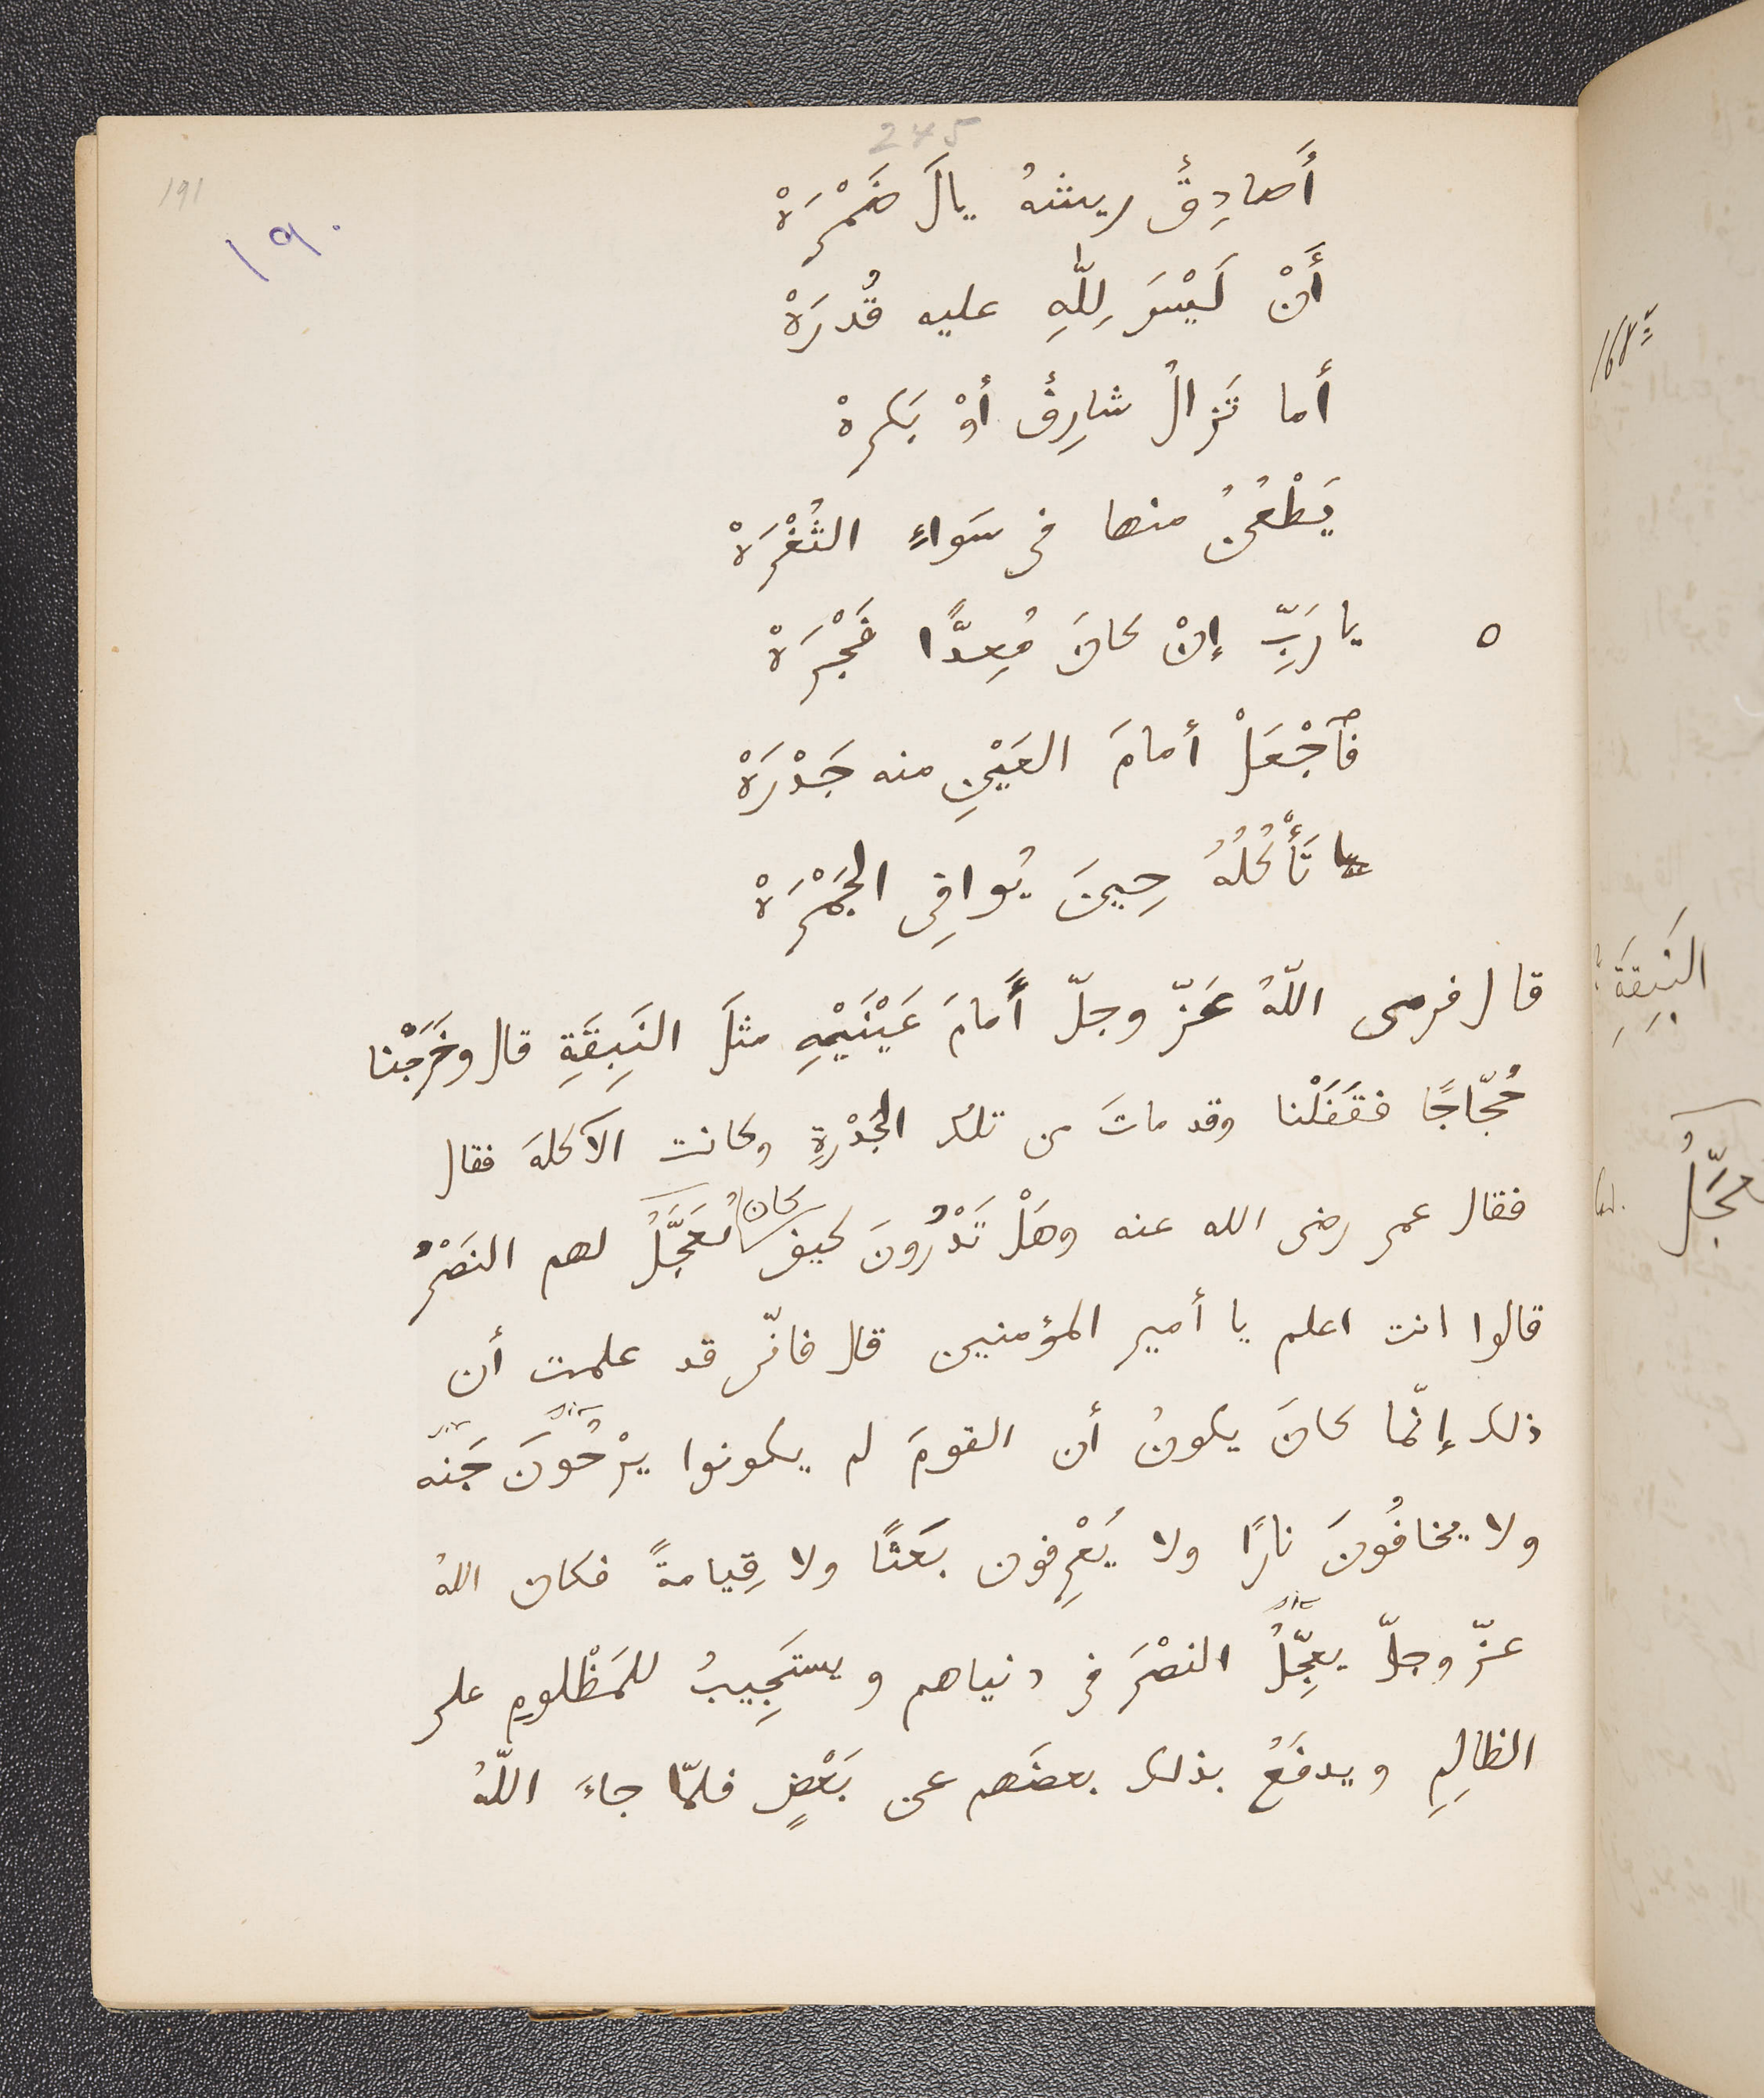 245
191
١٩٠
أَصادِقٌ ريشهُ يالَ ضَمْرَهْ
أَنْ لَيْسَ لِلّهِ عليه قُدرَهْ
أما تَزالُ شارِفٌ أوْ بَكرهْ
يَطْعُنُ منها فى سَواءِ الثُغْرَهْ
يا رَبِّ إنْ كانَ مُعِدًّا فَجْرَهْ
٥
فٱجْعَلْ أمامَ العَيْنِ منه جَدْرَهْ
تَأْكُلُهُ حِينَ يُوافِى الجَمْرَهْ
قال فرمى اللّهُ عَزّ وجلّ أَمامَ عَيْنَيْهِ مثلَ النَبِقَةِ قال وخَرَجْنا
حُجّاجًا فقَفَلْنا وقد ماتَ من تلك الجَدْرةِ وكانت الآكلةَ فقال
فقال عمر رضى الله عنه وهَلْ تَدْرُونَ كيف كان يُعَجَّلُ لهم النَصْرُ
قالوا انت اعلم يا أمير المؤمنين قال فانّى قد علمت أن
ذلك إنّما كانَ يكونُ أن القومَ لم يكونوا يرْجُونَ جَنّه
ولا يخافُونَ نارًا ولا يَعْرِفون بَعَثًا ولا قِيامةً فكان اللهُ
عزّ وجلّ يعجِّلُ النصْرَ فى دنياهم ويستَجِيبُ للمَظْلومِ على
الظالِمِ ويدفَعُ بذلك بعضَهم عن بَعْضٍ فلمّا جاءَ اللّهُ
168
النَبِقةِ